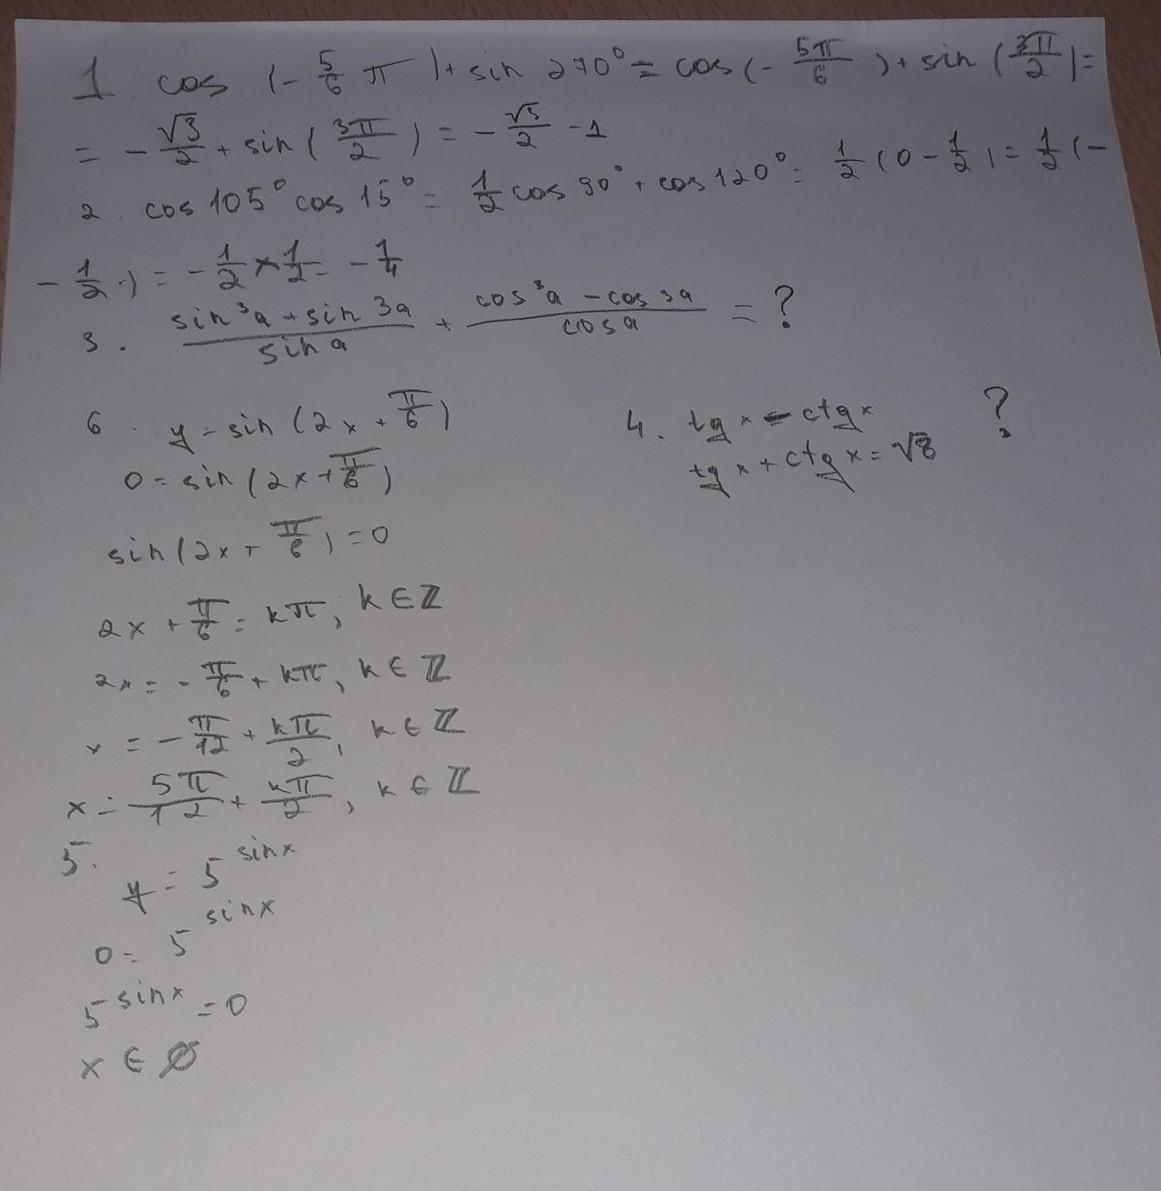 1. cos (- 5/6 π) + sin 270° = cos (- 5π/6) + sin (3π/2) =
= - √3/2 + sin (3π/2) = - √3/2 - 1
2. cos 105° cos 15° = 1/2 cos 90° + cos 120° = 1/2 (0 - 1/2) = 1/2 (-
- 1/2) = - 1/2 × 1/2 = - 1/4
3. (sin³a + sin 3a)/(sin a) + (cos³a - cos 3a)/(cos a) = ?
6. y = sin (2x + π/6)
0 = sin (2x + π/6)
sin (2x + π/6) = 0
2x + π/6 = kπ, k ∈ ℤ
2x = - π/6 + kπ, k ∈ ℤ
x = - π/12 + kπ/2, k ∈ ℤ
x = 5π/12 + kπ/2, k ∈ ℤ
5.
y = 5^sinx
0 = 5^sinx
5^sinx = 0
x ∈ ∅
4. tg x - ctg x ?
tg x + ctg x = √8